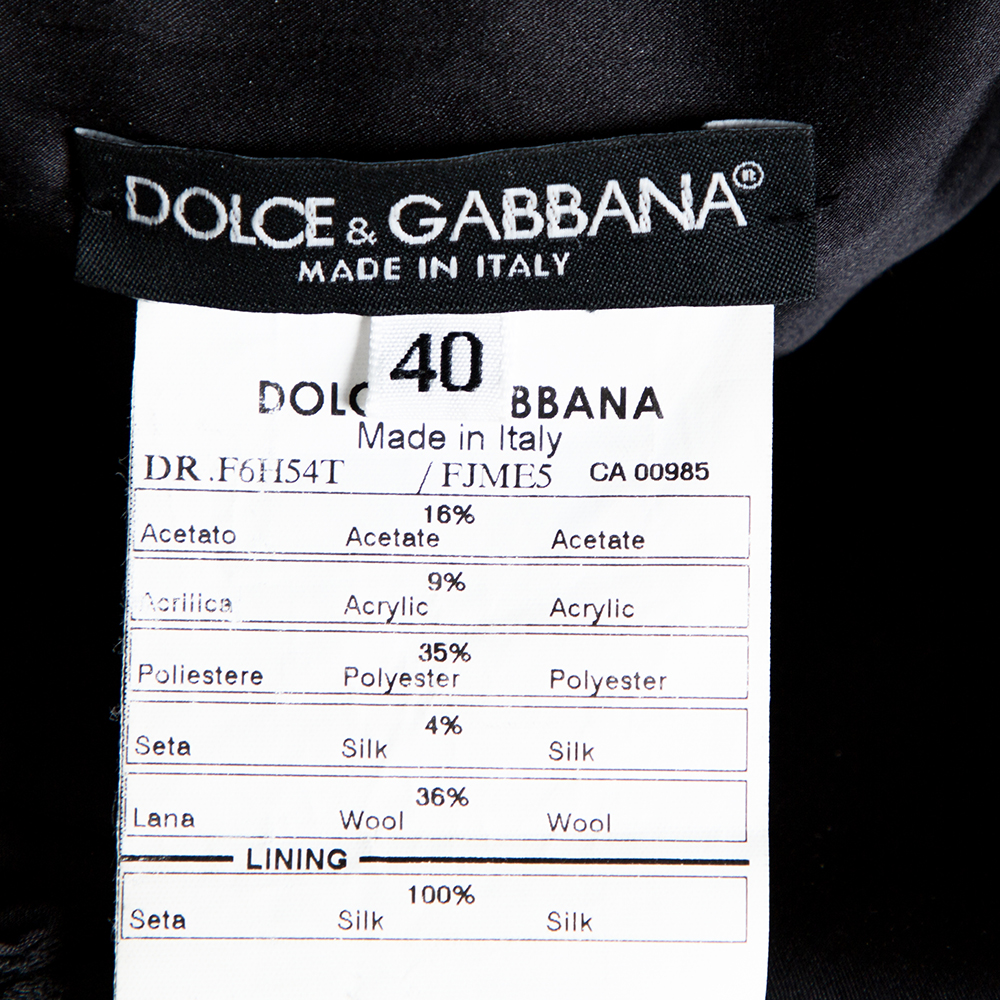 DOLCE & GABBANA®
MADE IN ITALY
40
DOLC BBANA
Made in Italy
DR.F6H54T /FJME5 CA 00985
16%
Acetato Acetate Acetate
9%
Acrilica Acrylic Acrylic
35%
Poliestere Polyester Polyester
4%
Seta Silk Silk
36%
Lana Wool Wool
LINING
100%
Seta Silk Silk